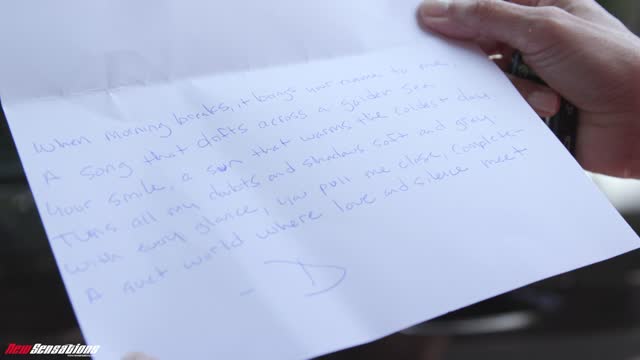 When morning breaks, it brings your name to me,
A song that drifts across a golden sea.
Your smile, a sun that warms the coldest day
Turns all my doubts and shadows soft and gray
With every glance, you pull me close, complete
A quiet world where love and silence meet
- D
New Sensations